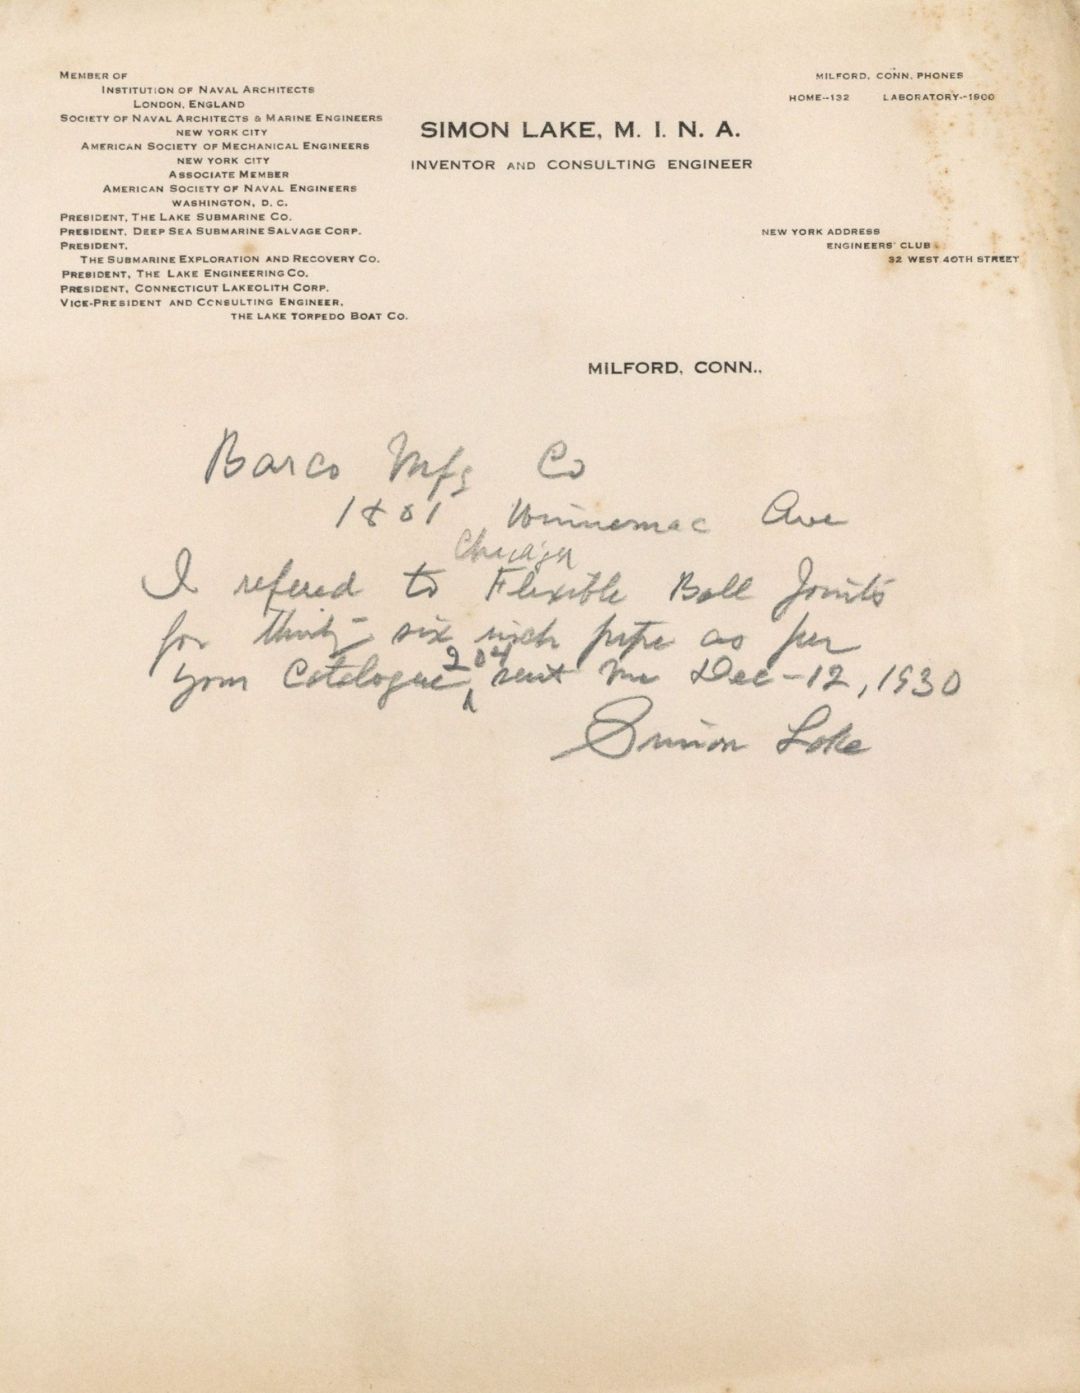 MEMBER OF
INSTITUTION OF NAVAL ARCHITECTS
LONDON, ENGLAND
SOCIETY OF NAVAL ARCHITECTS & MARINE ENGINEERS
NEW YORK CITY
AMERICAN SOCIETY OF MECHANICAL ENGINEERS
NEW YORK CITY
ASSOCIATE MEMBER
AMERICAN SOCIETY OF NAVAL ENGINEERS
WASHINGTON, D. C.
PRESIDENT, THE LAKE SUBMARINE CO.
PRESIDENT, DEEP SEA SUBMARINE SALVAGE CORP.
PRESIDENT,
THE SUBMARINE EXPLORATION AND RECOVERY CO.
PRESIDENT, THE LAKE ENGINEERING CO.
PRESIDENT, CONNECTICUT LAKEOLITH CORP.
VICE-PRESIDENT AND CONSULTING ENGINEER,
THE LAKE TORPEDO BOAT CO.
SIMON LAKE, M. I. N. A.
INVENTOR AND CONSULTING ENGINEER
MILFORD, CONN. PHONES
HOME--132 LABORATORY--1900
NEW YORK ADDRESS
ENGINEERS' CLUB
32 WEST 40TH STREET
MILFORD, CONN.,
Barco Mfg Co
1801 Winnemac Ave
Chicago
I refered to Flexible Ball Joints
for thirty-six inch pipe as per
your Catalogue 204 sent me Dec-12, 1930
Simon Lake